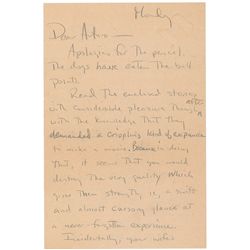 Monday
Dear Arturo —
Apologies for the pencil.
The dogs have eaten the ball
points.
Read the enclosed stories
with considerable pleasure though after
with the knowledge that they
demanded a crippling kind of expansion
to make a movie. Because in doing
that, it seems that you would
destroy the very quality which
give them strength, i.e., a swift
and almost cursory glance at
a never-forgotten experience.
Incidentally, your